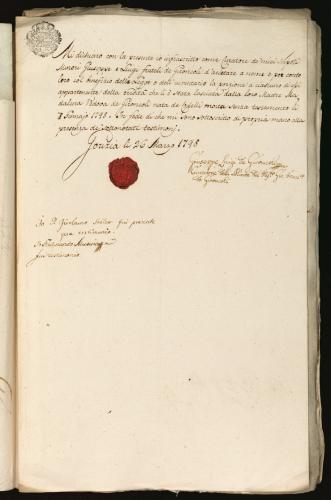 Mi dichiaro con la presente io infrascritto come Curatore de miei Nipoti
Minori Giuseppe e Luigi fratelli de Gironcoli d'accetare a nome e per conto
loro col beneficio della Legge e dell'inventario la porzione a ciascuno di essi
appartenente della eredità che li è stata lasciata dalla loro Madre Ma-
dalena Vedova de Gironcoli nata de morta senza testamento li
7 Gennajo 1798. In fede di che mi sono sottoscritto di propria mano alla
presenza de' sottonotati testimonj.
Gorizia li 26 Marzo 1798
Giuseppe Luigi de Gironcoli
Curatore delli
de Gironcoli
Io P. Girolamo fui presente
per testimonio.
Io Ferdinando
fui testimonio